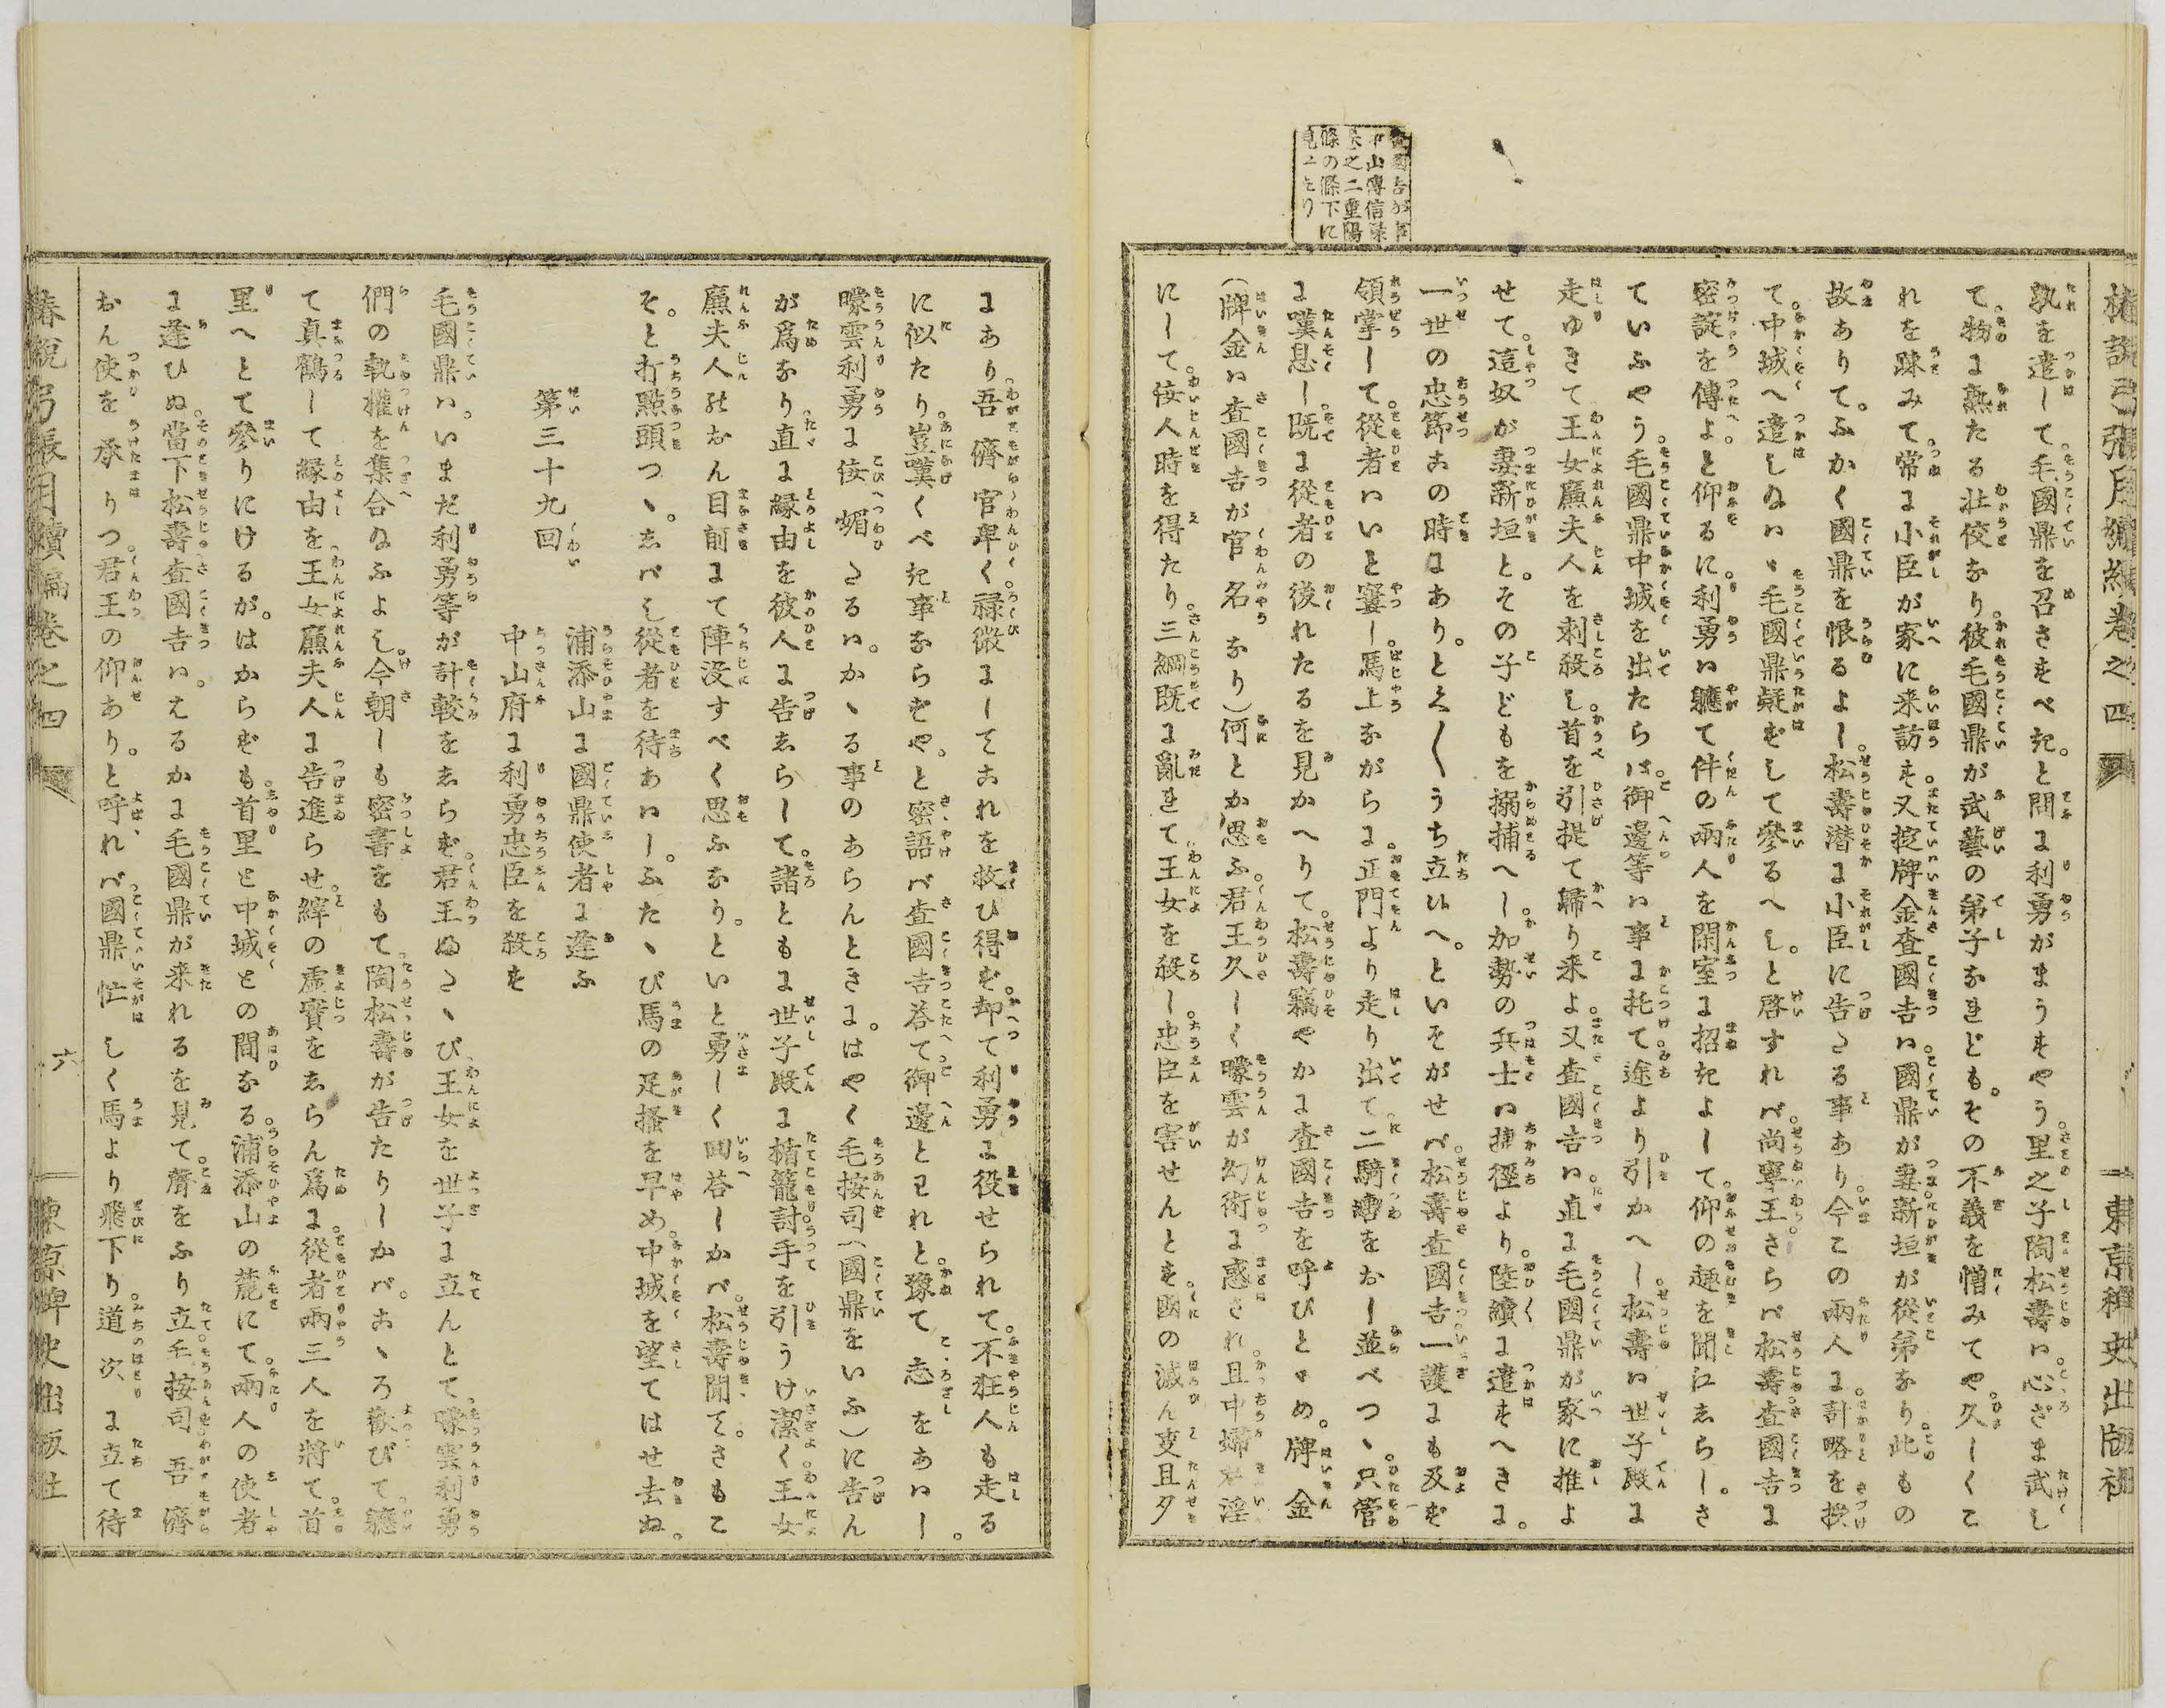 椿説弓張月續編卷之四
東京稗史出版社
孰を遣して毛國鼎を召さすべき。と問に利勇がまうすやう里之子陶松壽ハ心ざま武し
て。物に熟たる壯佼なり彼毛國鼎が武藝の弟子なれども。その不義を憎みてや久しくこ
れを疎みて常に小臣が家に来訪す又掟牌金査國吉ハ國鼎が妻新垣が從弟なり此もの
故ありて。ふかく國鼎を恨るよし松壽潜に小臣に告たる事あり今この兩人に計略を授
て。中城へ遣しなハ、毛國鼎疑ずして參るべし。と啓すれバ。尚寧王さらバ松壽査國吉に
密諚を傳よ。と仰るに利勇ハ軈て件の兩人を閑室に招きよして仰の趣を聞江しらし。さ
ていふやう毛國鼎中城を出たらバ御邊等ハ事に托て途より引かへし松壽ハ世子殿に
走ゆきて王女廉夫人を刺殺し首を引提て歸り来よ又査國吉ハ直に毛國鼎が家に推よ
せて。這奴が妻新垣と。その子どもを搦捕へし加勢の兵士ハ捷徑より。陸續に遣すへきに。
一世の忠節この時にあり。とく〱うち立ひへ。といそがせバ松壽査國吉一議にも及ず
領掌して從者ハいと窶し馬上ながらに正門より走り出て。二騎轡をおし並べつヽ只管
に嘆息し既に從者の後れたるを見かへりて松壽竊やかに査國吉を呼びとゞめ。牌金
(牌金ハ査國吉が官名なり)何とか思ふ君王久しく曚雲が幻術に惑され且中婦君淫
にして佞人時を得たり三綱既に亂れて王女を殺し忠臣を害せんとす國の滅ん事且夕
査國吉が事
中山傳信録
卷之二重陽
條の條下に
見江たり
にあり吾儕官卑く禄微にしてこれを救ひ得ず却て利勇に役せられて不狂人も走る
に似たり豈嘆くべき事ならずや。と密語バ査國吉荅て御邊とわれと豫て志をあハし。
曚雲利勇に佞媚ざるハ。かヽる事のあらんときに。はやく毛按司(國鼎をいふ)に告ん
が爲なり直に縁由を彼人に告しらして諸ともに世子殿に楯籠討手を引うけ潔く王女
廉夫人のおん目前にて陣没すべく思ふなり。といと勇しく回荅しかバ松壽聞てさもこ
そ。と打點頭つヽ。しバし從者を待あハし。ふたヽび馬の足掻を早め中城を望てはせ去ぬ。
第三十九回
浦添山に國鼎使者に逢ふ
中山府に利勇忠臣を殺す
毛國鼎ハ。いまだ利勇等が計較をしらず君王ふたヽび王女を世子に立んとて曚雲利勇
們の執權を集合なふよし今朝しも密書をもて陶松壽が告たりしかバ。こヽろ歡びて軈
て真鶴して縁由を王女廉夫人に告進らせ縡の虚實をしらん爲に從者兩三人を將て首
里へとて參りにけるが。はからずも首里と中城との間なる浦添山の麓にて兩人の使者
に逢ひぬ當下松壽査國吉ハ。はるかに毛國鼎が来れるを見て聲をふり立毛按司吾儕
おん使を承りつ君王の仰あり。と呼れバ國鼎忙しく馬より飛下り道次に立て待
椿説弓張月續編卷之四
六
東京稗史出版社